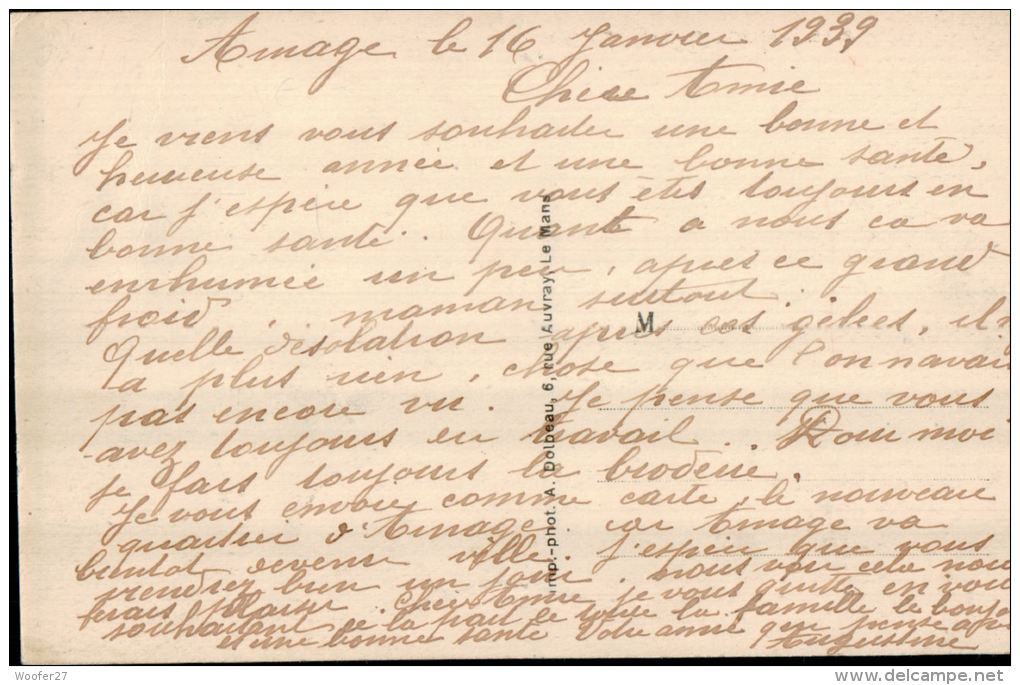 Amage le 16 Janvier 1939
Chère Amie
Je viens vous souhaiter une bonne et
heureuse année et une bonne santé,
car j'espère que vous êtes toujours en
bonne santé. Quant a nous ca va
enrhumée un peu, après ce grand
froid, maman surtout.
Quelle désolation après ces gelées, il n
a plus rien, chose que l'on navait
pas encore vu. Je pense que vous
avez toujours eu travail.. Pour moi
je fais toujours la broderie.
Je vous envoie comme carte, le nouveau
quartier d'Amage. car Amage va
bientot devenir ville. j'espère que vous
viendrez bien un jour. nous voir cela nous
ferais plaisir. Cher Amie je vous quitte en vous
souhaitant de la part de toute la famille le bonjour
et une bonne santé Votre amie qui pense a vous
Augustine
M
Imp.-phot. A. Dolbeau, 6, rue Auvray, Le Mans
Woofer27
www.delcampe.net